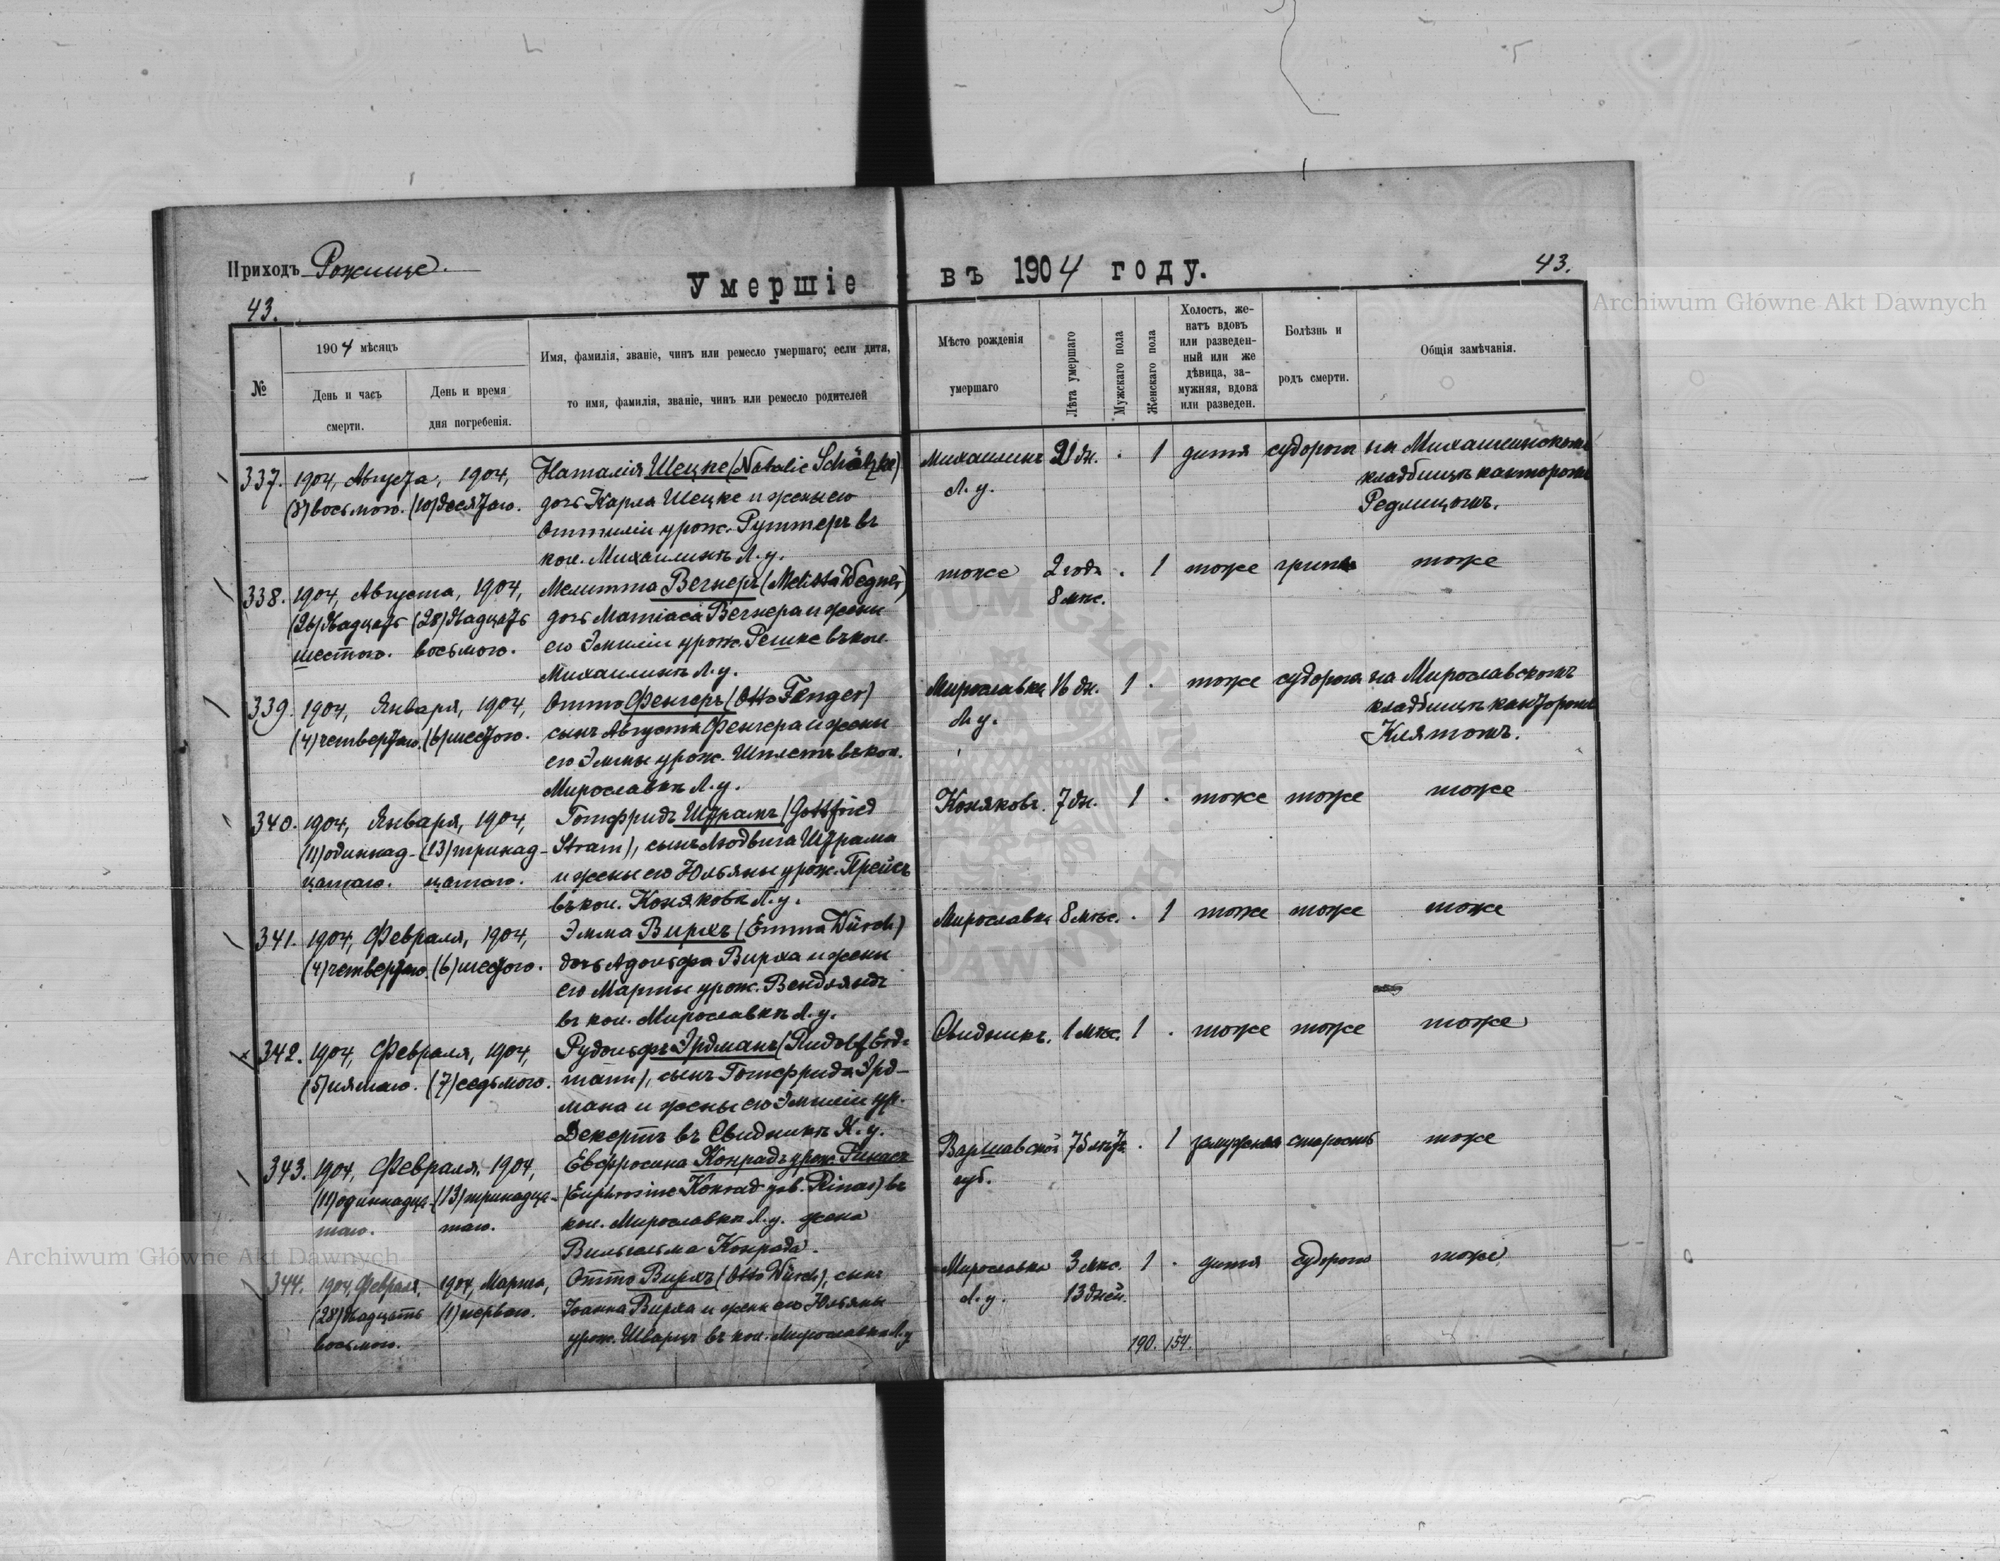 Приходъ Рожище.
43.
Умершіе въ 1904 году.
43.
№
1904 мѣсяцъ
День и часъ смерти.
День и время дня погребенія.
Имя, фамилія, званіе, чинъ или ремесло умершаго; если дитя,
то имя, фамилія, званіе, чинъ или ремесло родителей
Мѣсто рожденія умершаго
Лѣта умершаго
Мужскаго пола
Женскаго пола
Холостъ, же-
натъ вдовъ
или разведен-
ный или же
дѣвица, за-
мужняя, вдова
или разведен.
Болѣзнь и родъ смерти.
Общія замѣчанія.
337. 1904, Августа, 1904, Наталія Шецке (Natalie Schätzke) Михайлинъ 21 дн. . 1 дитя судорога на Михайлинскомъ
(8) восьмого. (10) десятаго. дочь Карла Шецке и жены его Л. у. кладбищѣ канторомъ
Оттиліи урож. Руттеръ въ Редлицомъ.
кол. Михайлинъ Л. у.
338. 1904, Августа, 1904, Мелитта Вегнеръ (Melitta Wegner) тоже 2 года . 1 тоже гриппъ тоже
(26) двадцать (28) двадцать дочь Матіаса Вегнера и жены 8 мѣс.
шестого. восьмого. его Эмиліи урож. Гешке въ кол.
Михайлинъ Л. у.
339. 1904, Января, 1904, Отто Фенгеръ (Otto Fenger) Мирославка 16 дн. 1 . тоже судорога на Мирославскомъ
(4) четвертаго. (6) шестого. сынъ Августа Фенгера и жены Л. у. кладбищѣ канторомъ
его Эммы урож. въ кол. Клятомъ.
Мирославкѣ Л. у.
340. 1904, Января, 1904, Готфридъ Штрамъ (Gottfried Коняковъ. 7 дн. 1 . тоже тоже тоже
(11) одиннад- (13) тринад- Stram), сынъ Людвига Штрама
цатаго. цатаго. и жены его Юльяны урож. Прейсъ
въ кол. Коняковѣ Л. у.
341. 1904, Февраля, 1904, Эмма Вирхъ (Emma Würch) Мирославка 8 мѣс. . 1 тоже тоже тоже
(4) четвертаго. (6) шестого. дочь Адольфа Вирха и жены
его Марты урож. Вендляндъ
въ кол. Мирославкѣ Л. у.
342. 1904, Февраля, 1904, Рудольфъ Эрдманъ (Rudolf Erd- Свидникъ. 1 мѣс. 1 . тоже тоже тоже
(5) пятаго. (7) седьмого. mann), сынъ Готфрида Эрд-
мана и жены его Эмиліи ур.
Декертъ въ Свидникѣ Л. у.
343. 1904, Февраля, 1904, Евфросина Конрадъ урож. Ринасъ Варшавской 75 лѣтъ . 1 замужняя старость тоже
(11) одиннадца- (13) тринадца- (Euphrosine Konrad geb. Rinas) въ губ.
таго. таго. кол. Мирославкѣ Л. у. жена
Вильгельма Конрада.
344. 1904, Февраля, 1904, Марта, Отто Вирхъ (Otto Würch), сынъ Мирославка 3 мѣс. 1 . дитя судорога тоже
(28) двадцать (1) перваго. Іоанна Вирха и жены его Юльяны Л. у. 13 дней.
восьмого. урож. Шварцъ въ кол. Мирославкѣ Л. у
190. 154.
Archiwum Główne Akt Dawnych
Archiwum Główne Akt Dawnych